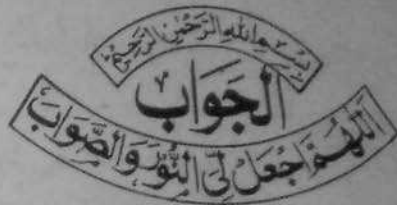 بِسْمِ اللهِ الرَّحْمٰنِ الرَّحِيْمِ
اَلْجَوَابُ
اَللّٰهُمَّ اجْعَلْ لِيَ النُّوْرَ وَالصَّوَابَ